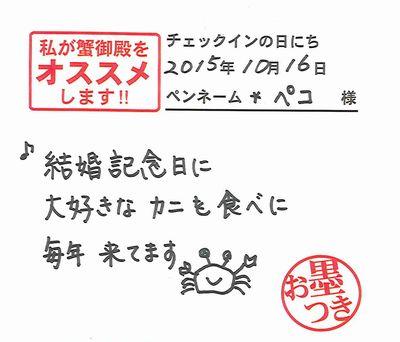 私が蟹御殿を
オススメ
します!!
チェックインの日にち
2015年10月16日
ペンネーム * ペコ 様
♪結婚記念日に
大好きな カニを食べに
毎年 来てます
お墨
つき